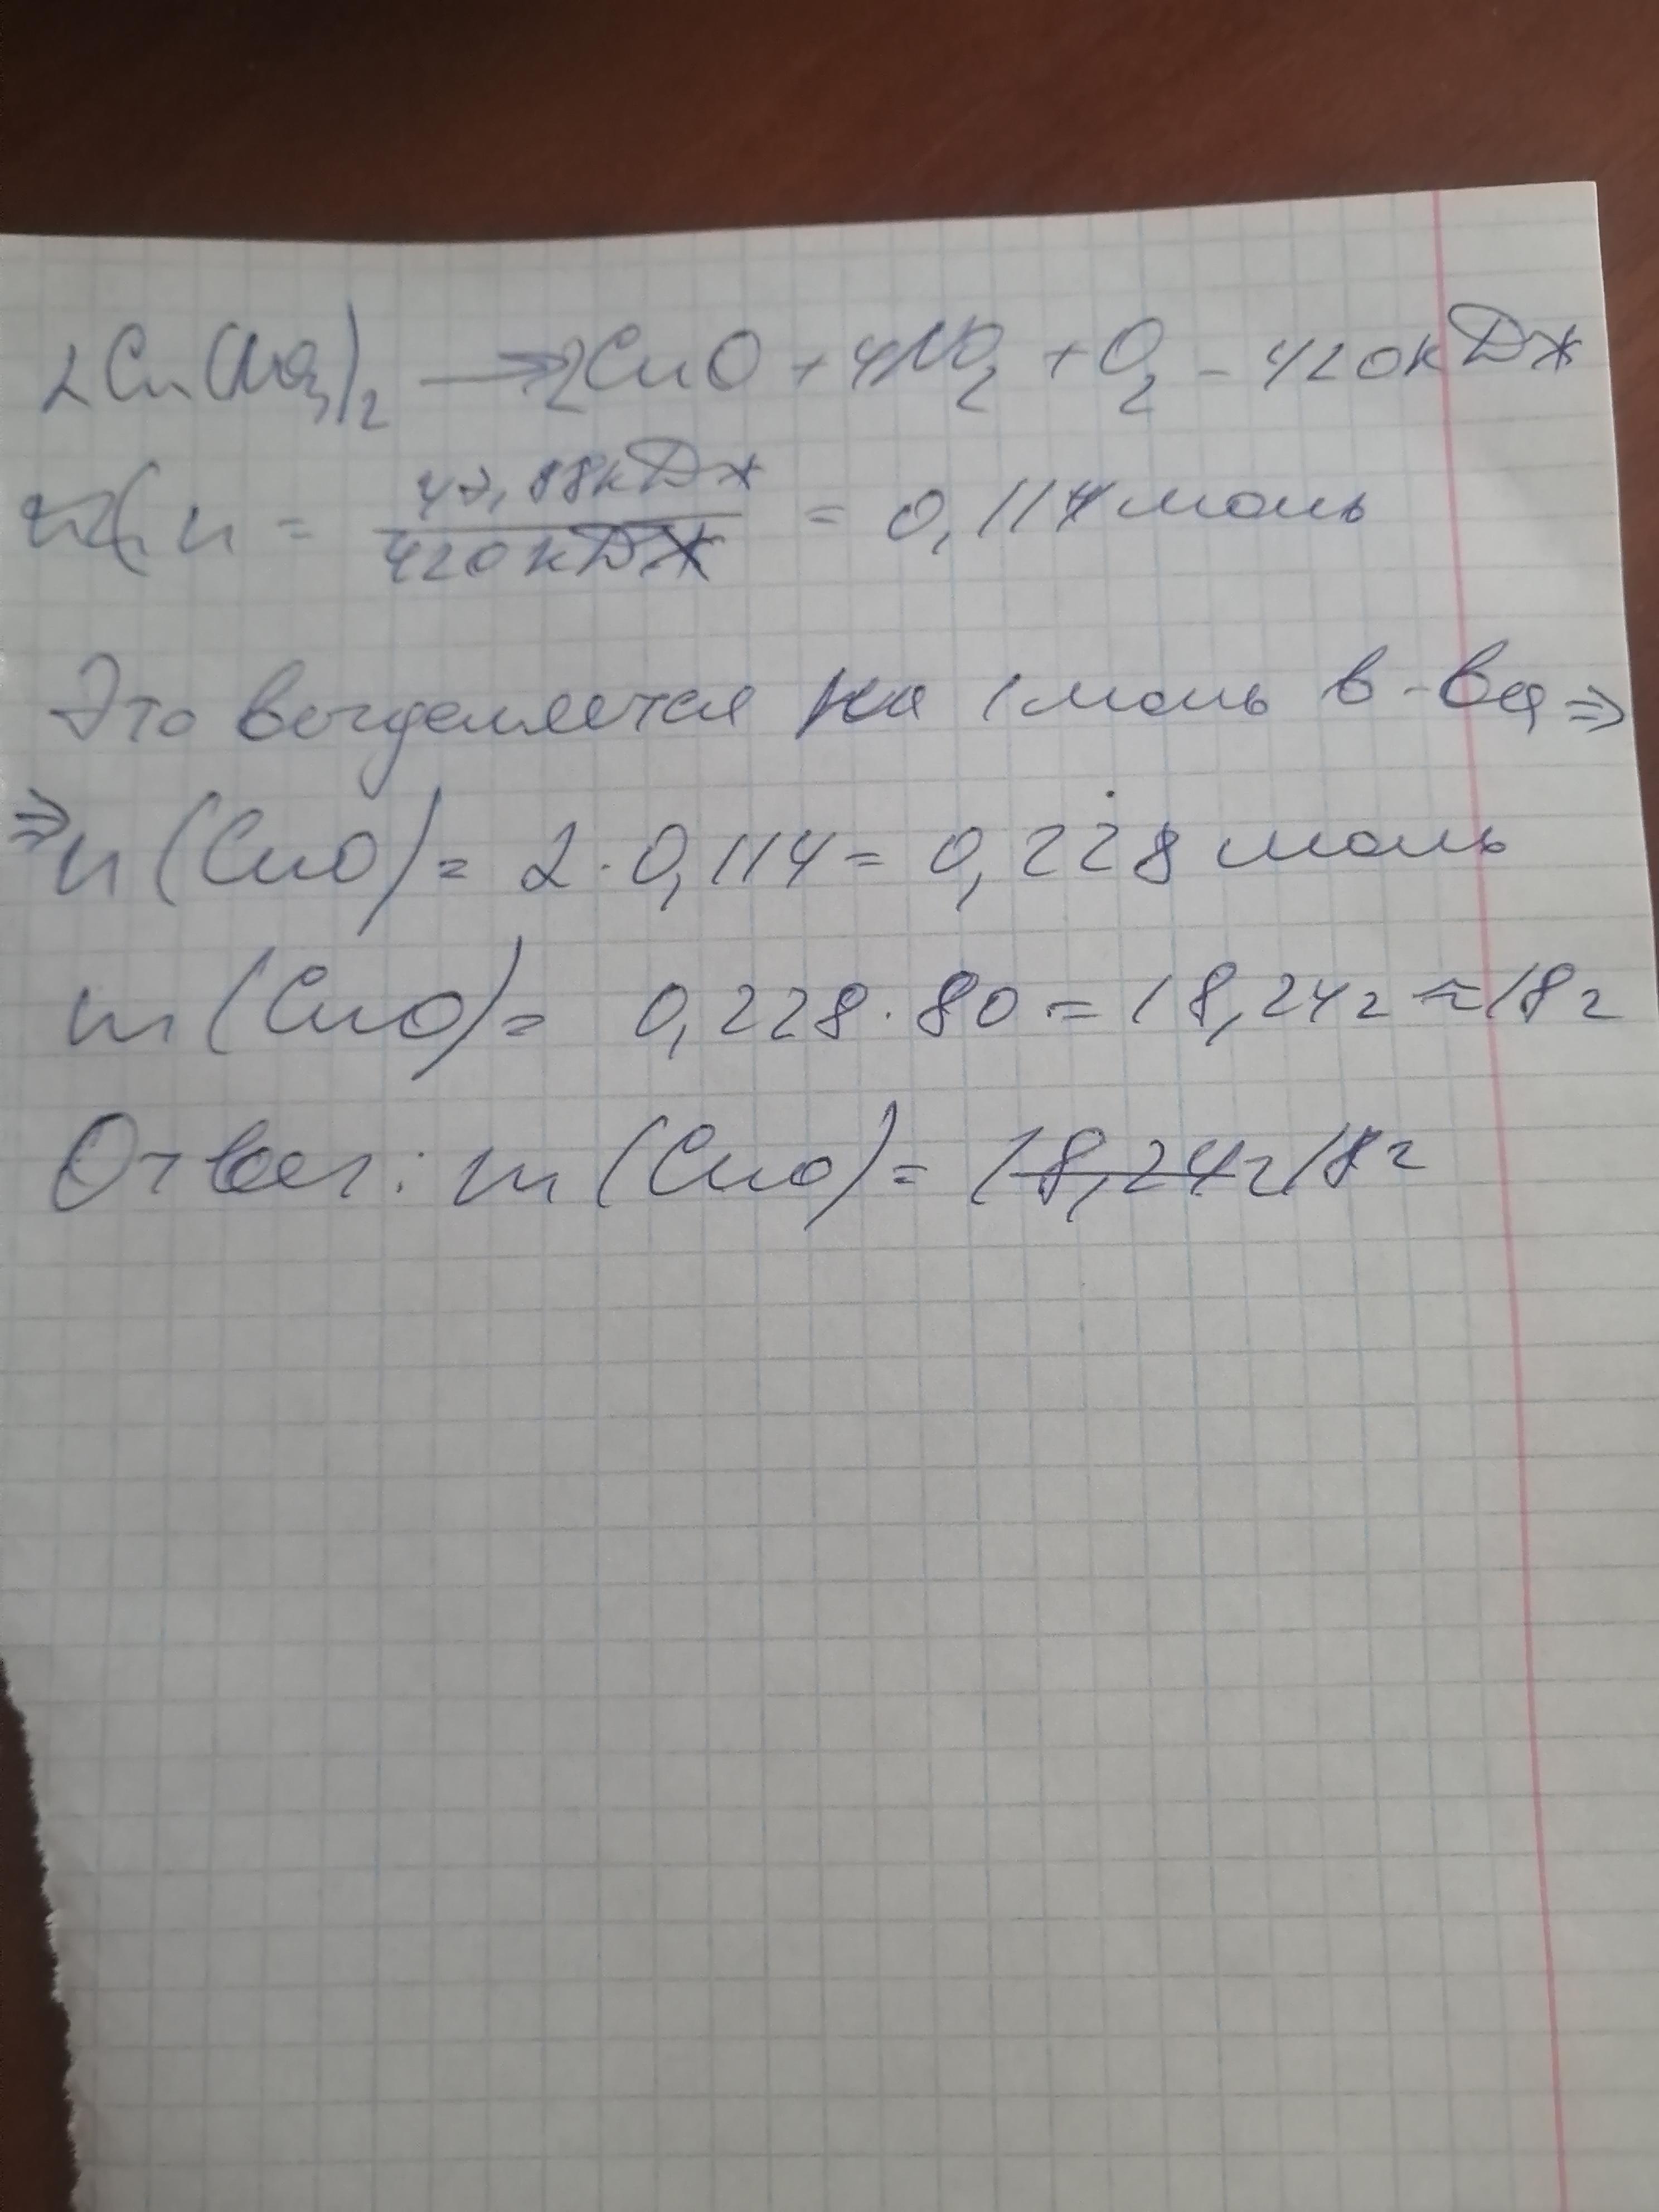 2Cu(NO₃)₂ → 2CuO + 4NO₂ + O₂ - 420кДж
n = 47,88кДж / 420кДж = 0,114 моль
Это выделяется на 1 моль в-ва ⇒
⇒ n(CuO) = 2·0,114 = 0,228 моль
m(CuO) = 0,228·80 = 18,24г ≈ 18г
Ответ: m(CuO) = 18,24г 18г